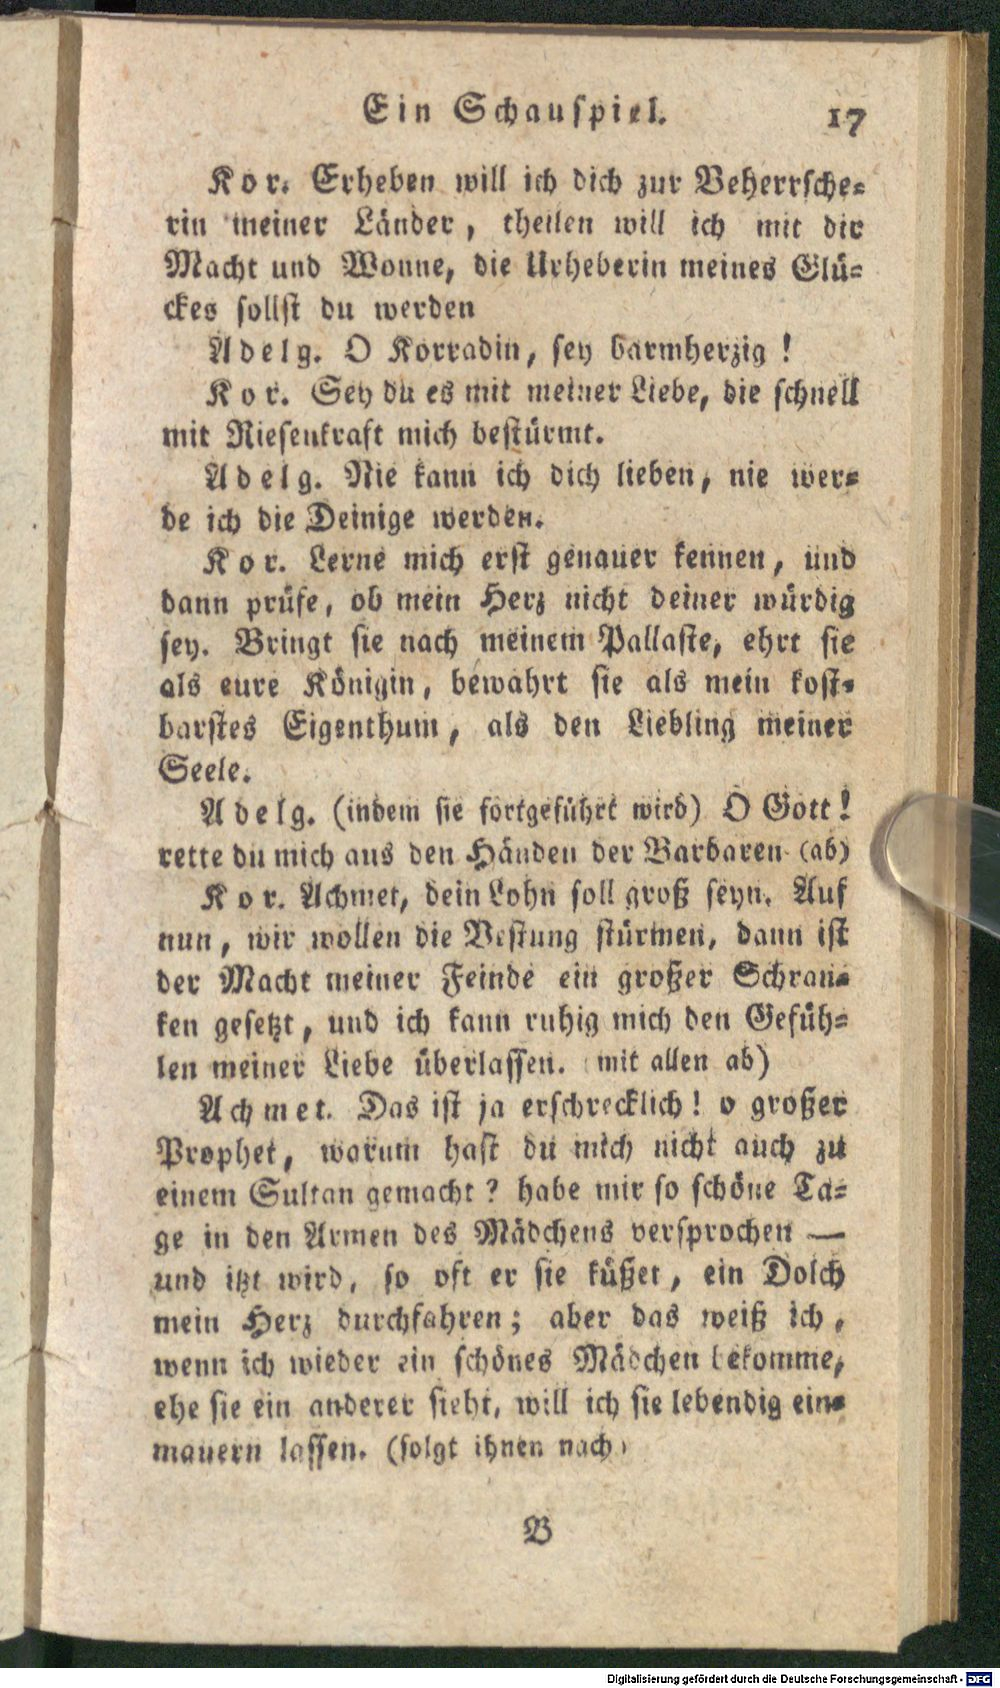 Ein Schauspiel. 17
Kor. Erheben will ich dich zur Beherrsche-
rin meiner Länder, theilen will ich mit dir
Macht und Wonne, die Urheberin meines Glü-
ckes sollst du werden
Adelg. O Korradin, sey barmherzig!
Kor. Sey du es mit meiner Liebe, die schnell
mit Riesenkraft mich bestürmt.
Adelg. Nie kann ich dich lieben, nie wer-
de ich die Deinige werden.
Kor. Lerne mich erst genauer kennen, und
dann prüfe, ob mein Herz nicht deiner würdig
sey. Bringt sie nach meinem Pallaste, ehrt sie
als eure Königin, bewahrt sie als mein kost-
barstes Eigenthum, als den Liebling meiner
Seele.
Adelg. (indem sie fortgeführt wird) O Gott!
rette du mich aus den Händen der Barbaren (ab)
Kor. Achmet, dein Lohn soll groß seyn. Auf
nun, wir wollen die Vestung stürmen, dann ist
der Macht meiner Feinde ein großer Schran-
ken gesetzt, und ich kann ruhig mich den Gefüh-
len meiner Liebe überlassen. (mit allen ab)
Achmet. Das ist ja erschrecklich! o großer
Prophet, warum hast du mich nicht auch zu
einem Sultan gemacht? habe mir so schöne Ta-
ge in den Armen des Mädchens versprochen —
und itzt wird, so oft er sie küßet, ein Dolch
mein Herz durchfahren; aber das weiß ich,
wenn ich wieder ein schönes Mädchen bekomme,
ehe sie ein anderer sieht, will ich sie lebendig ein-
mauern lassen. (folgt ihnen nach)
B
Digitalisierung gefördert durch die Deutsche Forschungsgemeinschaft - DFG